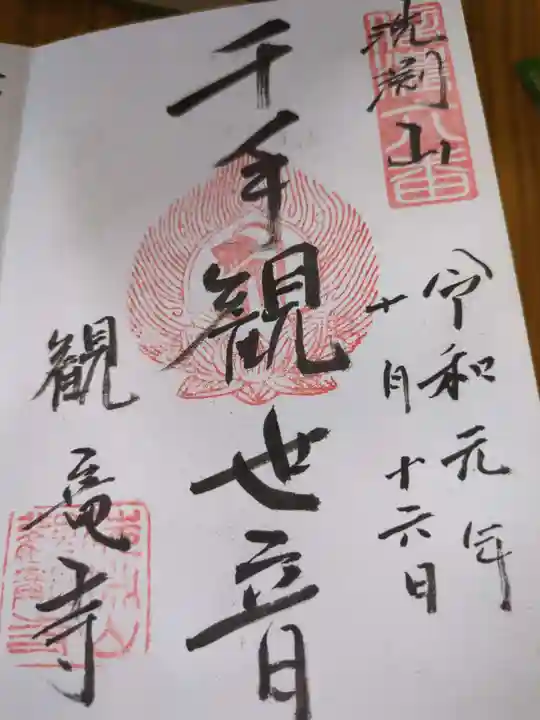 洗渕山
令和元年
十月十六日
千手観世音
観竜寺